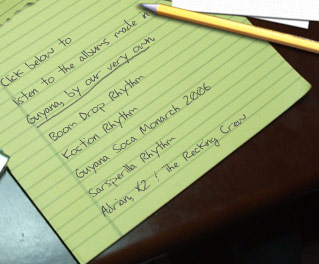 Click below to
listen to the albums made in
Guyana, by our very own
Boom Drop Rhythm
Koction Rhythm
Guyana Soca Monarch 2006
Sarsperilla Rhythm
Adrian, K2 & The Recking Crew